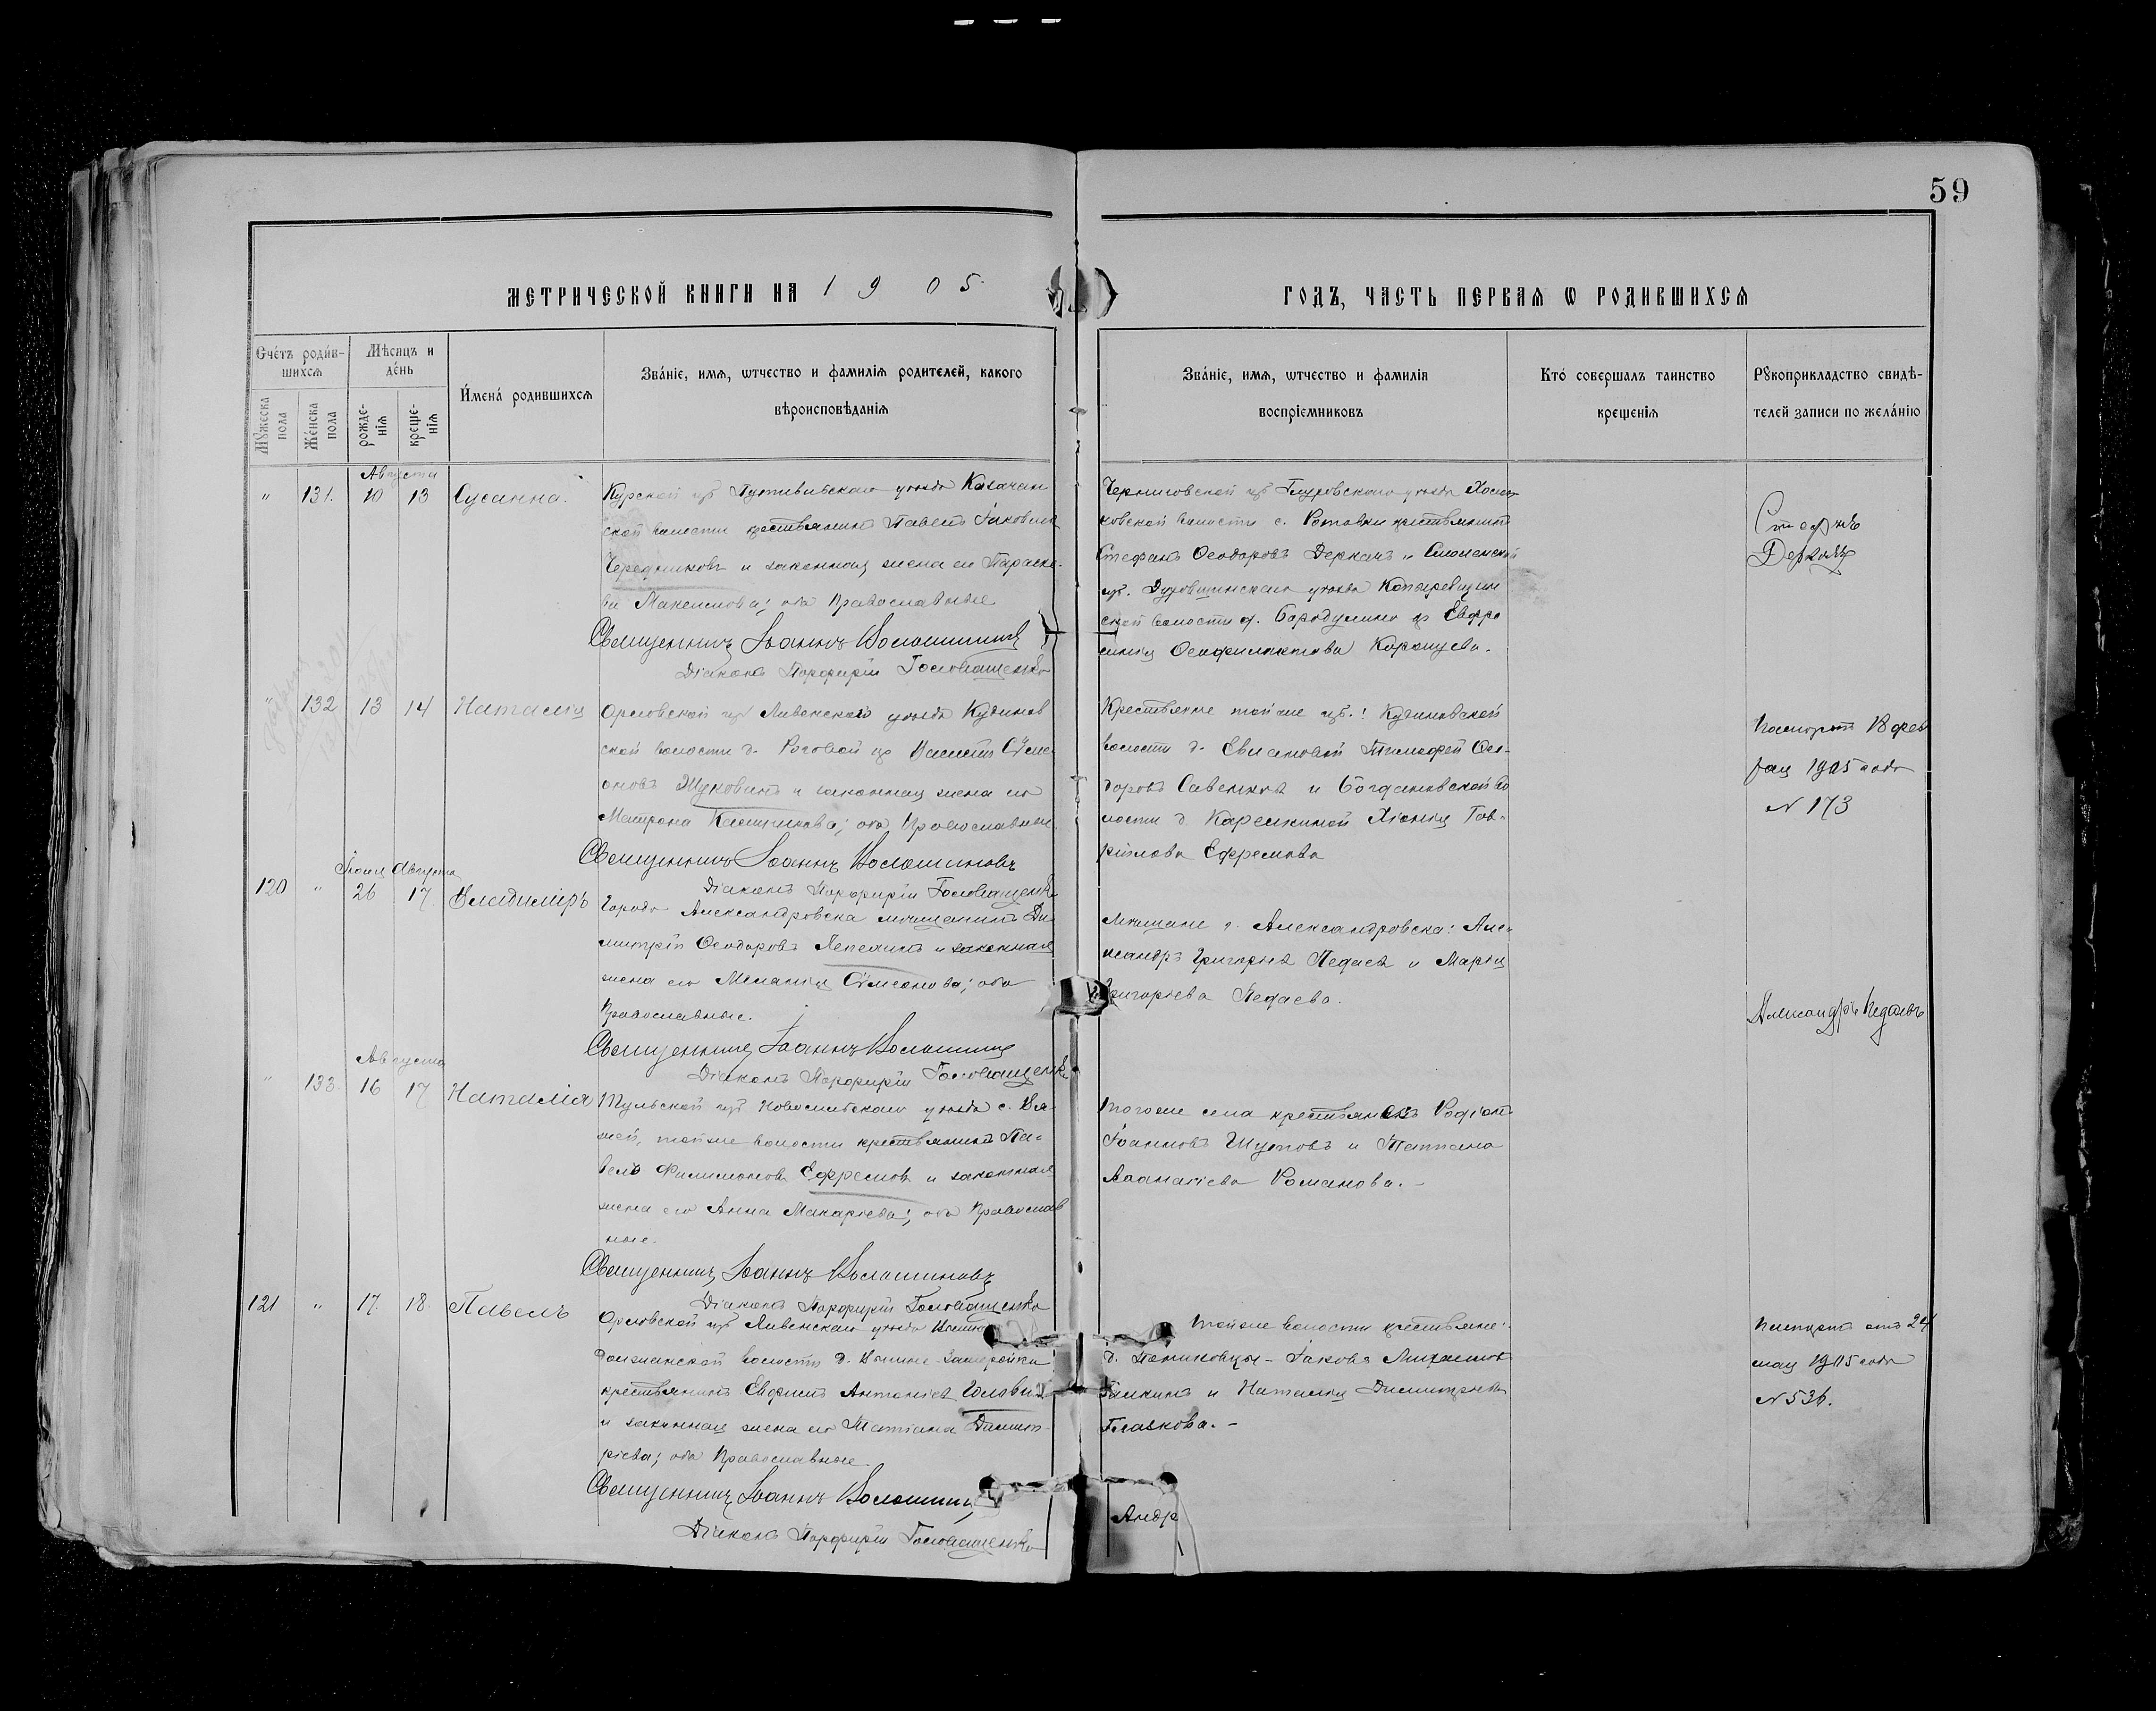 59
МЕТРИЧЕСКОЙ КНИГИ НА 1905.
ГОДЪ, ЧАСТЬ ПЕРВАѦ Ѡ РОДИВШИХСѦ
Счéтъ роди́в-
шихсѧ
Мѣсѧцъ и
дéнь
Мꙋжеска
пола
Жéнска
пола
рожде-
нїѧ
креще-
нїѧ
И́мена́ родившихсѧ
Звáнїе, имѧ, ѿтчество и фамилїѧ родителей, какого
вѣроисповѣданїѧ
Звáнїе, имѧ, ѿтчество и фамилїѧ
воспрїемниковъ
Ктó совершалъ таинство
крещенїѧ
Рꙋкоприкладство свидѣ-
телей записи по желáнїю
Августа
" 131. 10 13 Сусанна.
Курской губ Путивльскаго уѣзда Казачан
ской волости крестьянинъ Павелъ Іаковлев
Чередниковъ и законная жена его Параске-
ва Максимова; оба православные
Священникъ Іоаннъ Волошиновъ
Діаконъ Порфирій Головащенко
Черниговской губ Глуховскаго уѣзда
ковской волости с. Ротовки крестьянинъ
Стефанъ Ѳеодоровъ Дерканъ и Смоленской
губ. Духовщинскаго уѣзда
ской волости д. Бородулино кр Евфро
синія Ѳеофилактова
Стефанъ
Дерканъ
" 132 13 14 Наталія
Орловской губ Ливенскаго уѣзда Кудинов
ской волости д. Роговой кр Сѵме
оновъ Жуковинъ и законная жена его
Матрона Калинникова; оба Православные.
Священникъ Іоаннъ Волошиновъ
Діаконъ Порфирій Головащенко
Крестьяне тойже губ.: Кудиновской
волости д. Евлановой Тимофей Ѳео-
доровъ Савенковъ и Богдановской во
лости д. Карелкиной Хіонія Гав-
рилова Ефремова
Паспортъ 18 фев
1905 года
№ 173
Іюля Августа
120 " 26 17. Владиміръ
Города Александровска мѣщанинъ Ди
митрій Ѳеодоровъ Лепехинъ и законная
жена его Меланія Сѵмеонова; оба
Православные.
Священникъ Іоаннъ Волошинов
Діаконъ Порфирій Головащенко
Мѣщане г. Александровска: Але-
ксандръ Григорьевъ Педаевъ и Марія
Григорьева Педаева.
Александръ Педаевъ
Августа
" 133. 16 17 Наталія
Тульской губ Новосильскаго уѣзда с. Вя-
жей, тойже волости крестьянинъ Па-
велъ Филимоновъ Ефремовъ и законная
жена его Анна Макарьева; оба Православ
ные.
Священникъ Іоаннъ Волошиновъ
Діаконъ Порфирій Головащенко
Тогоже села крестьянинъ Родіонъ
Іоанновъ Шутовъ и Татіана
Аѳанасіева Романова. -
121 " 17. 18. Павелъ
Орловской губ Ливенскаго уѣзда
должанской волости д.
крестьянинъ Евфимъ Антоніевъ Головинъ
и законная жена его Татіана Димит
ріева; оба Православные.
Священникъ Іоаннъ Волошинов
Діаконъ Порфирій Головащенко
Тойже волости крестьяне:
д. Іаковъ
Галкинъ и Наталія Димитріева
Глазкова. -
Паспортъ отъ 24
мая 1905 года
№ 536.
Андр